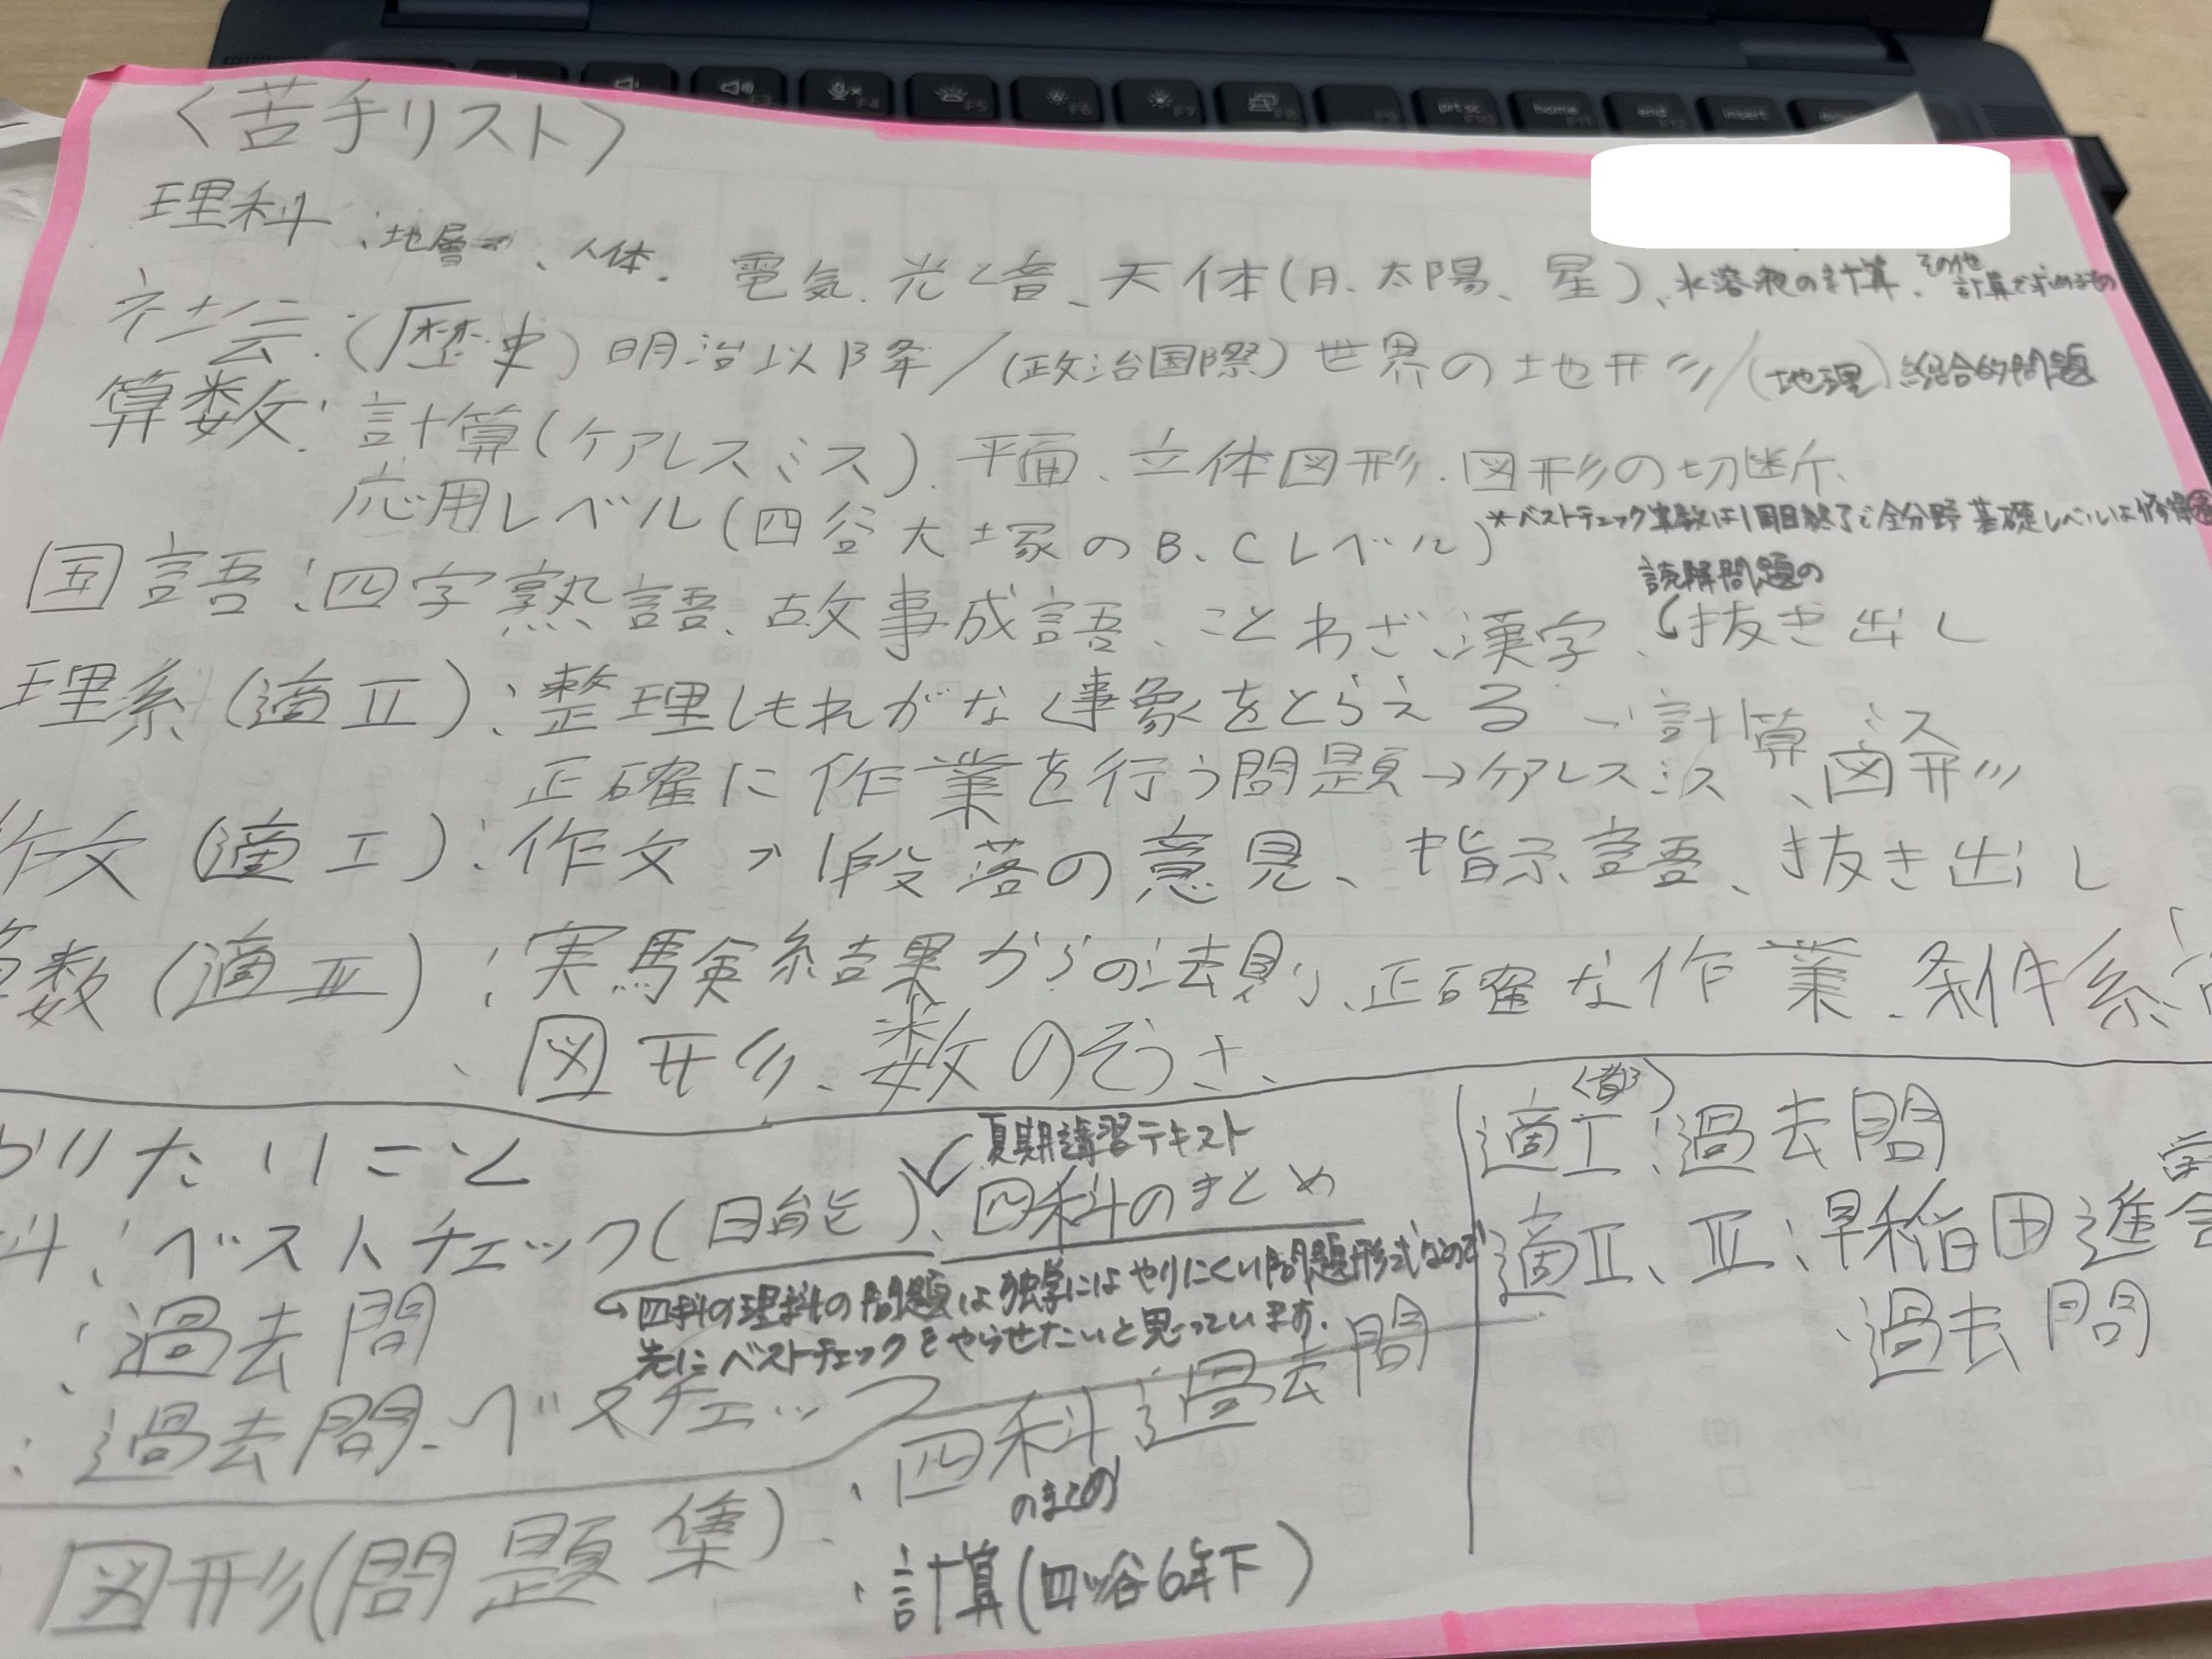 〈苦手リスト〉
理科:地層、人体、電気、光と音、天体(月、太陽、星)、水溶液の計算、その他計算で求めるもの
社会:(歴史)明治以降/(政治国際)世界の地形/(地理)総合的問題
算数:計算(ケアレスミス)、平面、立体図形、図形の切断、
応用レベル(四谷大塚のB、Cレベル)
*ベストチェック算数は1周目終了で全分野基礎レベルは修得
読解問題の
国語:四字熟語、故事成語、ことわざ、漢字、抜き出し
理系(適Ⅱ):整理しもれがなく事象をとらえる→計算ミス
正確に作業を行う問題→ケアレスミス、図形
作文(適Ⅰ):作文→1段落の意見、指示語、抜き出し
算数(適Ⅲ):実験結果からの法則、正確な作業、条件
、図形、数のそうさ、
やりたいこと
夏期講習テキスト
科:ベストチェック(日能)、四科のまとめ
↪四科の理科の問題は独学にはやりにくい問題形式なので
先にベストチェックをやらせたいと思っています。
:過去問
:過去問、ベスチェック
、四科のまとめ
過去問
図形(問題集)
、計算(四ッ谷6年下)
適Ⅰ:過去問
適Ⅱ、Ⅲ:早稲田進学会
、過去問